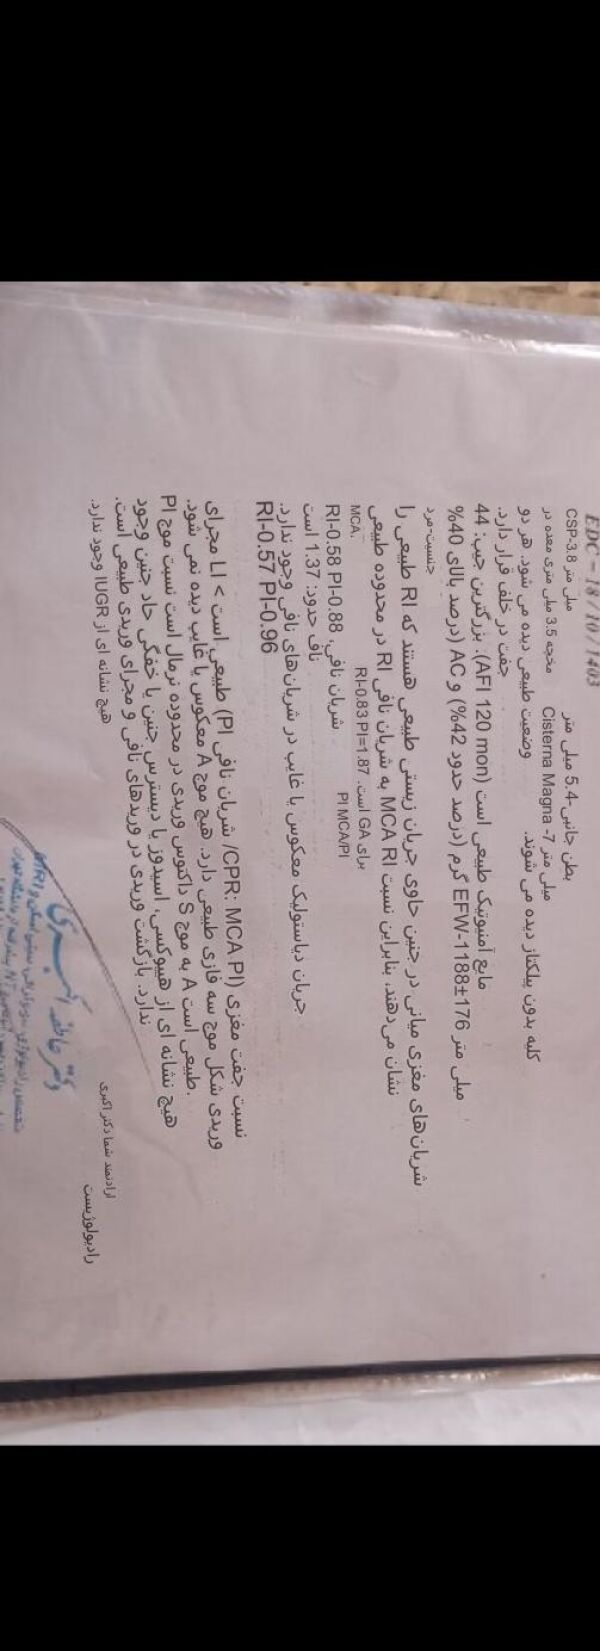 EDC - 18/10/1403
بطن جانبی-5.4 میلی متر
CSP-3.8 میلی متر
مخچه 3.5 میلی متری معده در Cisterna Magna -7 میلی متر
وضعیت طبیعی دیده می شود. هر دو کلیه بدون پیلکتاز دیده می شوند.
جفت در خلف قرار دارد.
مایع آمنوتیک طبیعی است (AFI 120 mon). بزرگترین جیب: 44 میلی متر
EFW-1188±176 گرم (درصد حدود 42%) و AC (درصد بالای 40%
جنسیت-مرد
شریان‌های مغزی میانی در جنین حاوی جریان زیستی طبیعی هستند که RI طبیعی را
نشان می‌دهند، بنابراین نسبت MCA RI به شریان نافی RI در محدوده طبیعی
برای GA است. RI-0.83 PI=1.87
MCA.
PI MCA/PI
شریان نافی، RI-0.58 PI-0.88
ناف حدود: 1.37 است
جریان دیاستولیک معکوس یا غایب در شریان‌های نافی وجود ندارد.
RI-0.57 PI-0.96
نسبت جفت مغزی (CPR: MCA PI/ شریان نافی PI) طبیعی است > LI مجرای
وریدی شکل موج سه فازی طبیعی دارد. هیچ موج A معکوس یا غایب دیده نمی شود.
طبیعی است A به موج S داکتوس وریدی در محدوده نرمال است نسبت موج PI.
هیچ نشانه ای از هیپوکسی، اسیدوز یا دیسترس جنین یا خفگی حاد جنین وجود
ندارد. بازگشت وریدی در وریدهای نافی و مجرای وریدی طبیعی است.
هیچ نشانه ای از IUGR وجود ندارد.
ارادتمند شما دکتر اکبری
رادیولوژیست
دکتر عاطفه اکبری